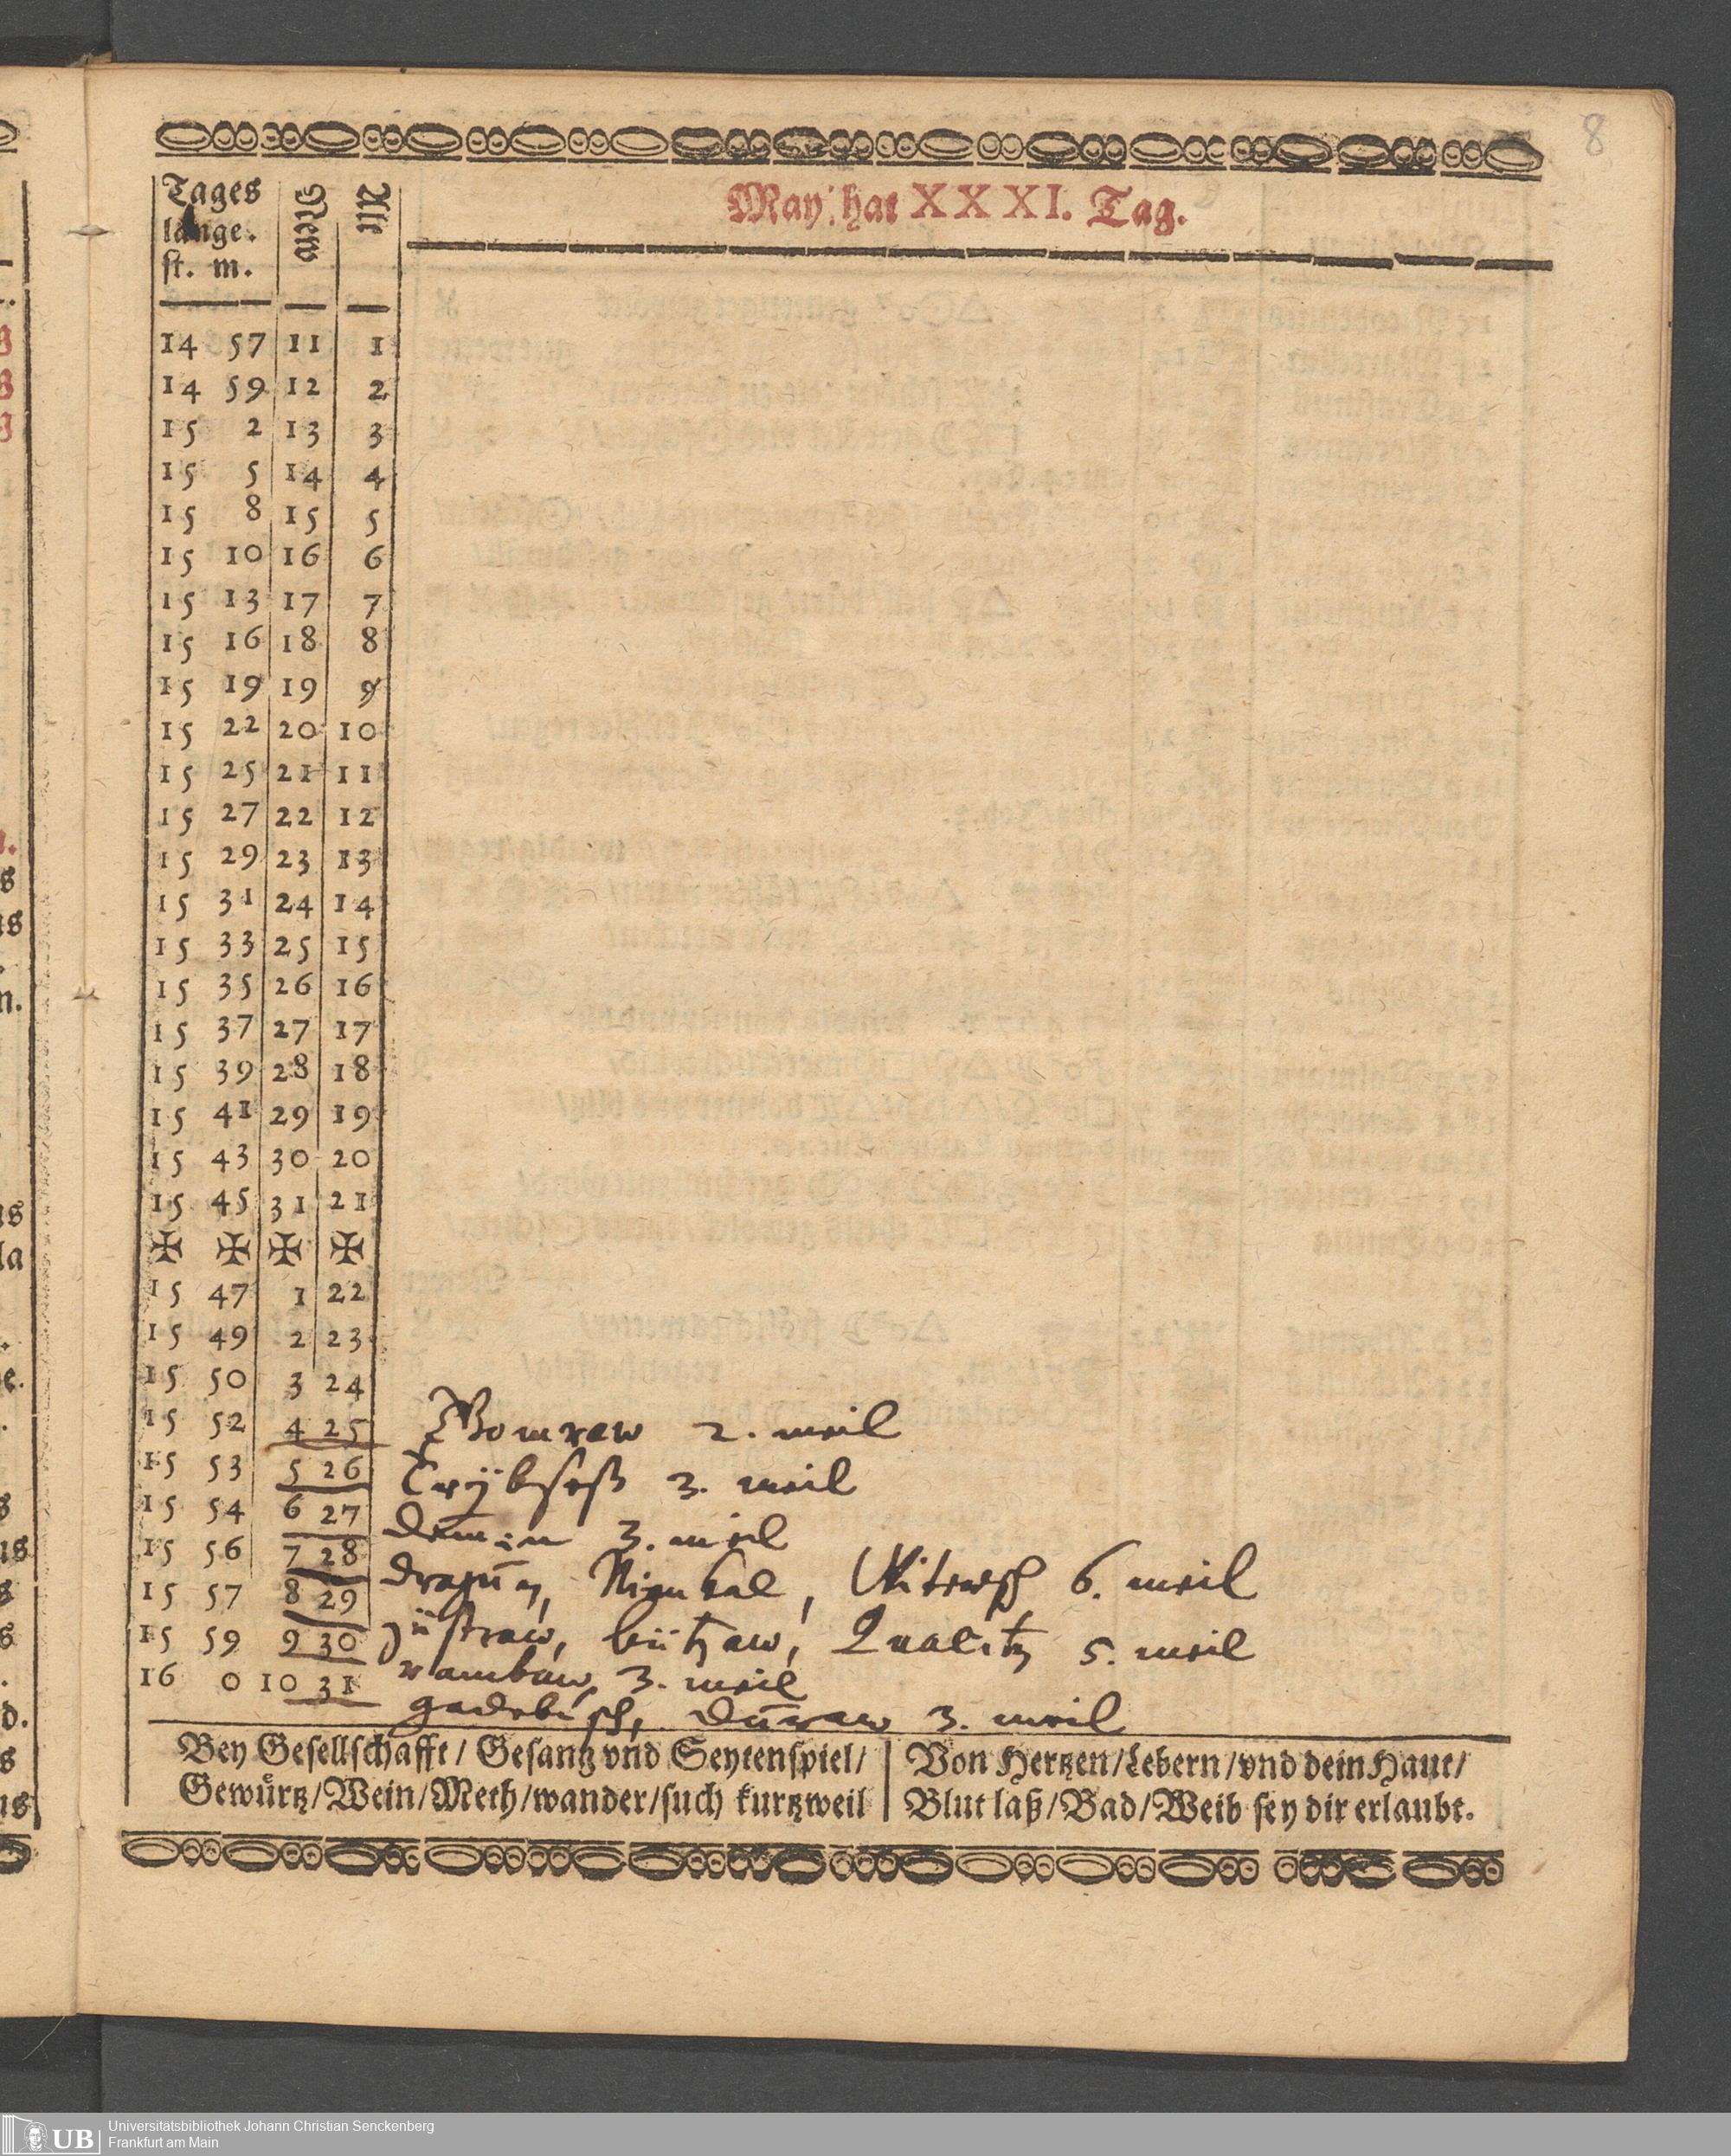 8
May hat XXXI. Tag.
Tages
länge.
st. m.
New
Alt
14 57 11 1
14 59 12 2
15 2 13 3
15 5 14 4
15 8 15 5
15 10 16 6
15 13 17 7
15 16 18 8
15 19 19 9
15 22 20 10
15 25 21 11
15 27 22 12
15 29 23 13
15 31 24 14
15 33 25 15
15 35 26 16
15 37 27 17
15 39 28 18
15 41 29 19
15 43 30 20
15 45 31 21
✠ ✠ ✠ ✠
15 47 1 22
15 49 2 23
15 50 3 24
15 52 4 25
15 53 5 26
15 54 6 27
15 56 7 28
15 57 8 29
15 59 9 30
16 0 10 31
2. meil
3. meil
3. meil
6. meil
güstraw, bützaw, Qualitz 5. meil
3. meil
gadebusch, 3. meil
Bey Gesellschafft / Gesang vnd Seytenspiel /
Gewürtz / Wein / Meth / wander / such kurtzweil
Von Hertzen / Lebern / vnd dein Haut /
Blut laß / Bad / Weib sey dir erlaubt.
UB
Universitätsbibliothek Johann Christian Senckenberg
Frankfurt am Main